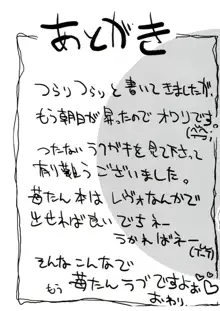 あとがき
つらりつらりと書いてきましたが、
もう朝日が昇ったのでオワリです
(ペコ)
つたないラクガキを見て下さって
有り難うございました。
苺たん本はレヴォなんかで
出せれば良いでちネー
うかればネー
(ボソ)
そんなこんなで
もう 苺たんラブですよぉ♡
おわり。